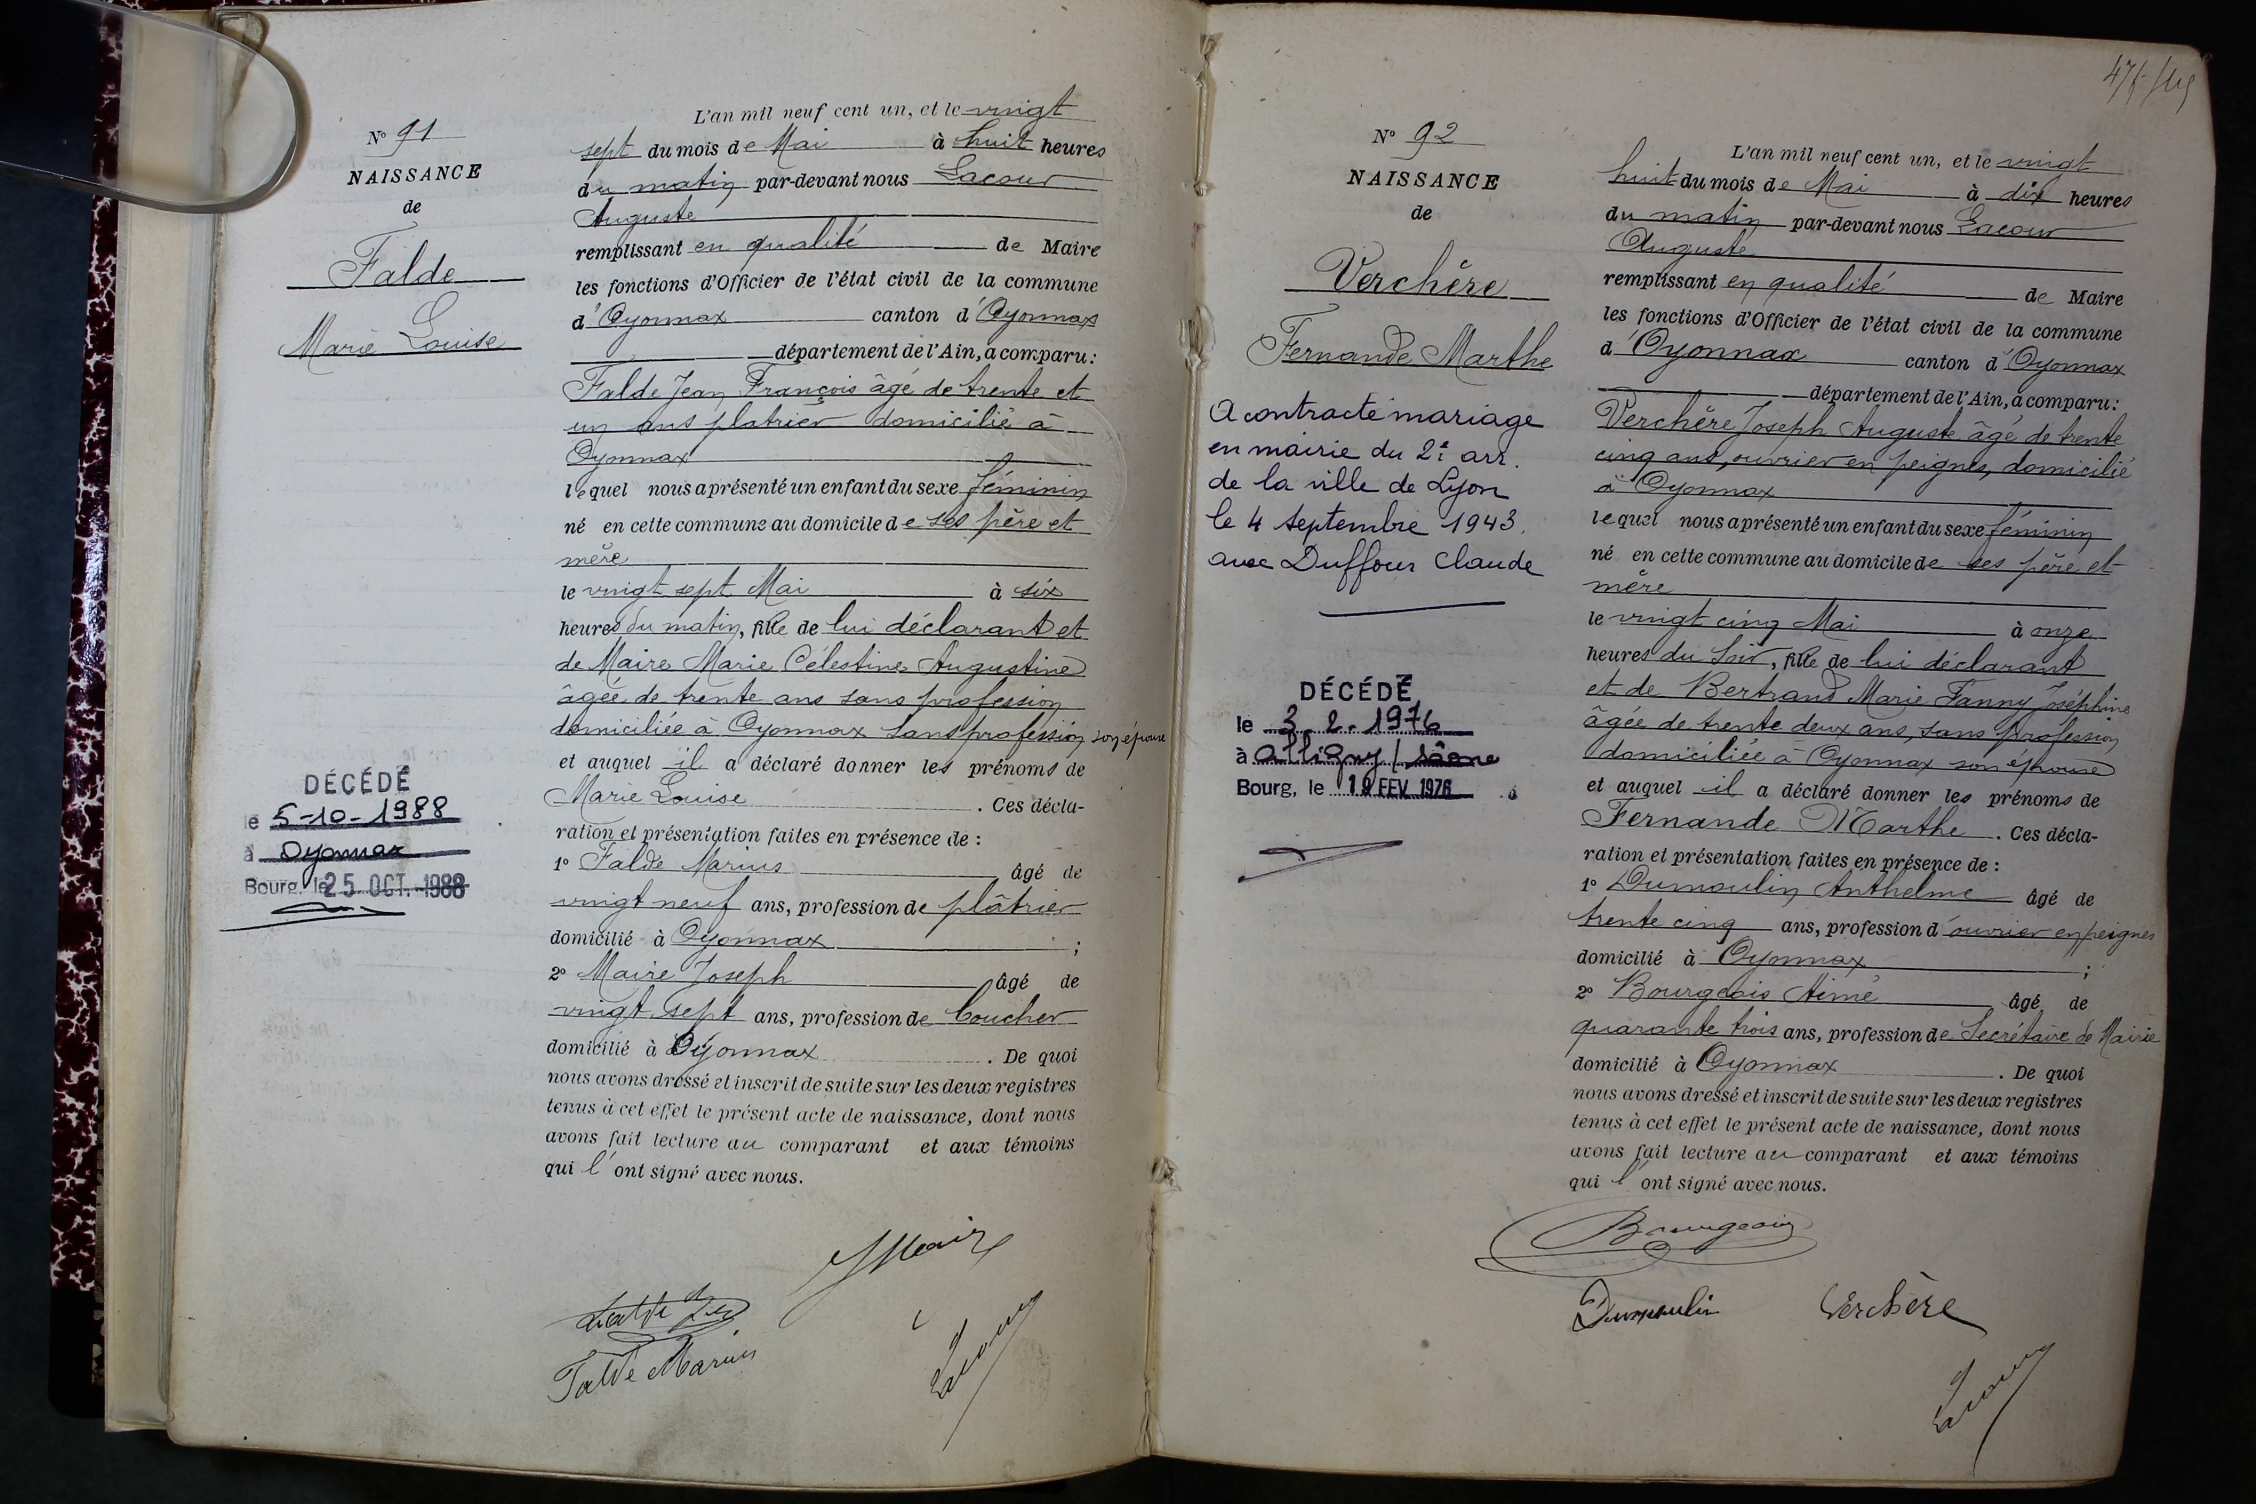 N° 91
NAISSANCE
de
Falde
Marie Louise
DÉCÉDÉ
le 5-10-1988
à Oyonnax
Bourg, le 25 OCT. 1988
L'an mil neuf cent un, et le vingt
sept du mois de Mai à huit heures
du matin par-devant nous Lacour
Auguste
remplissant en qualité de Maire
les fonctions d'Officier de l'état civil de la commune
d'Oyonnax canton d'Oyonnax
département de l'Ain, a comparu:
Falde Jean François âgé de trente et
un ans platrier domicilié à
Oyonnax
lequel nous a présenté un enfant du sexe féminin
né en cette commune au domicile de ses père et
mère
le vingt sept Mai à six
heures du matin, fille de lui déclarant et
de Maire Marie Célestine Augustine
âgée de trente ans sans profession
domiciliée à Oyonnax sans profession son épouse
et auquel il a déclaré donner les prénoms de
Marie Louise . Ces décla-
ration et présentation faites en présence de :
1° Falde Marius âgé de
vingt neuf ans, profession de plâtrier
domicilié à Oyonnax ;
2° Maire Joseph âgé de
vingt sept ans, profession de boucher
domicilié à Oyonnax . De quoi
nous avons dressé et inscrit de suite sur les deux registres
tenus à cet effet le présent acte de naissance, dont nous
avons fait lecture au comparant et aux témoins
qui l'ont signé avec nous.
JMaire
Falde Marius
Lacour
N° 92
NAISSANCE
de
Verchère
Fernande Marthe
A contracté mariage
en mairie du 2e arr.
de la ville de Lyon
le 4 septembre 1943.
avec Duffour Claude
DÉCÉDÉ
le 3-2-1976
à Attigny / Saône
Bourg, le 18 FEV 1976
L'an mil neuf cent un, et le vingt
huit du mois de Mai à dix heures
du matin par-devant nous Lacour
Auguste
remplissant en qualité de Maire
les fonctions d'Officier de l'état civil de la commune
d'Oyonnax canton d'Oyonnax
département de l'Ain, a comparu:
Verchère Joseph Auguste âgé de trente
cinq ans, ouvrier en peignes, domicilié
à Oyonnax
lequel nous a présenté un enfant du sexe féminin
né en cette commune au domicile de ses père et
mère
le vingt cinq Mai à onze
heures du soir, fille de lui déclarant
et de Bertrand Marie Fanny Joséphine
âgée de trente deux ans, sans profession
domiciliée à Oyonnax son épouse
et auquel il a déclaré donner les prénoms de
Fernande Marthe . Ces décla-
ration et présentation faites en présence de :
1° Dumoulin Anthelme âgé de
trente cinq ans, profession d'ouvrier en peignes
domicilié à Oyonnax ;
2° Bourgeois Aimé âgé de
quarante trois ans, profession de Secrétaire de Mairie
domicilié à Oyonnax . De quoi
nous avons dressé et inscrit de suite sur les deux registres
tenus à cet effet le présent acte de naissance, dont nous
avons fait lecture au comparant et aux témoins
qui l'ont signé avec nous.
Bourgeois
Dumoulin Verchère
Lacour